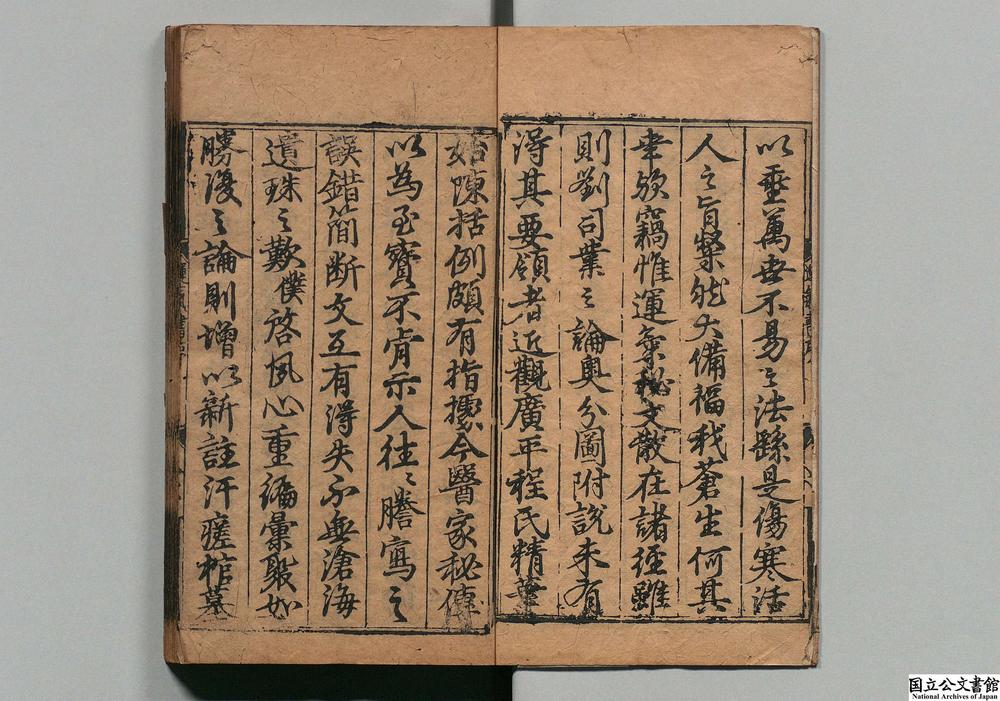 以垂萬世不易之法繇是傷寒活
人之旨粲然大備福我蒼生何其
幸歟竊惟運氣秘文散在諸經雖
則劉司業之論奧分圖附說未有
得其要領者近觀廣平程氏精華
始陳括例頗有指據今醫家秘傳
以為至寶不肯示人往〻謄寫之
誤錯簡斷文互有得失不無滄海
遺珠之歎僕啓夙心重編彙聚如
勝復之論則增以新註汗瘥棺墓
国立公文書館
National Archives of Japan